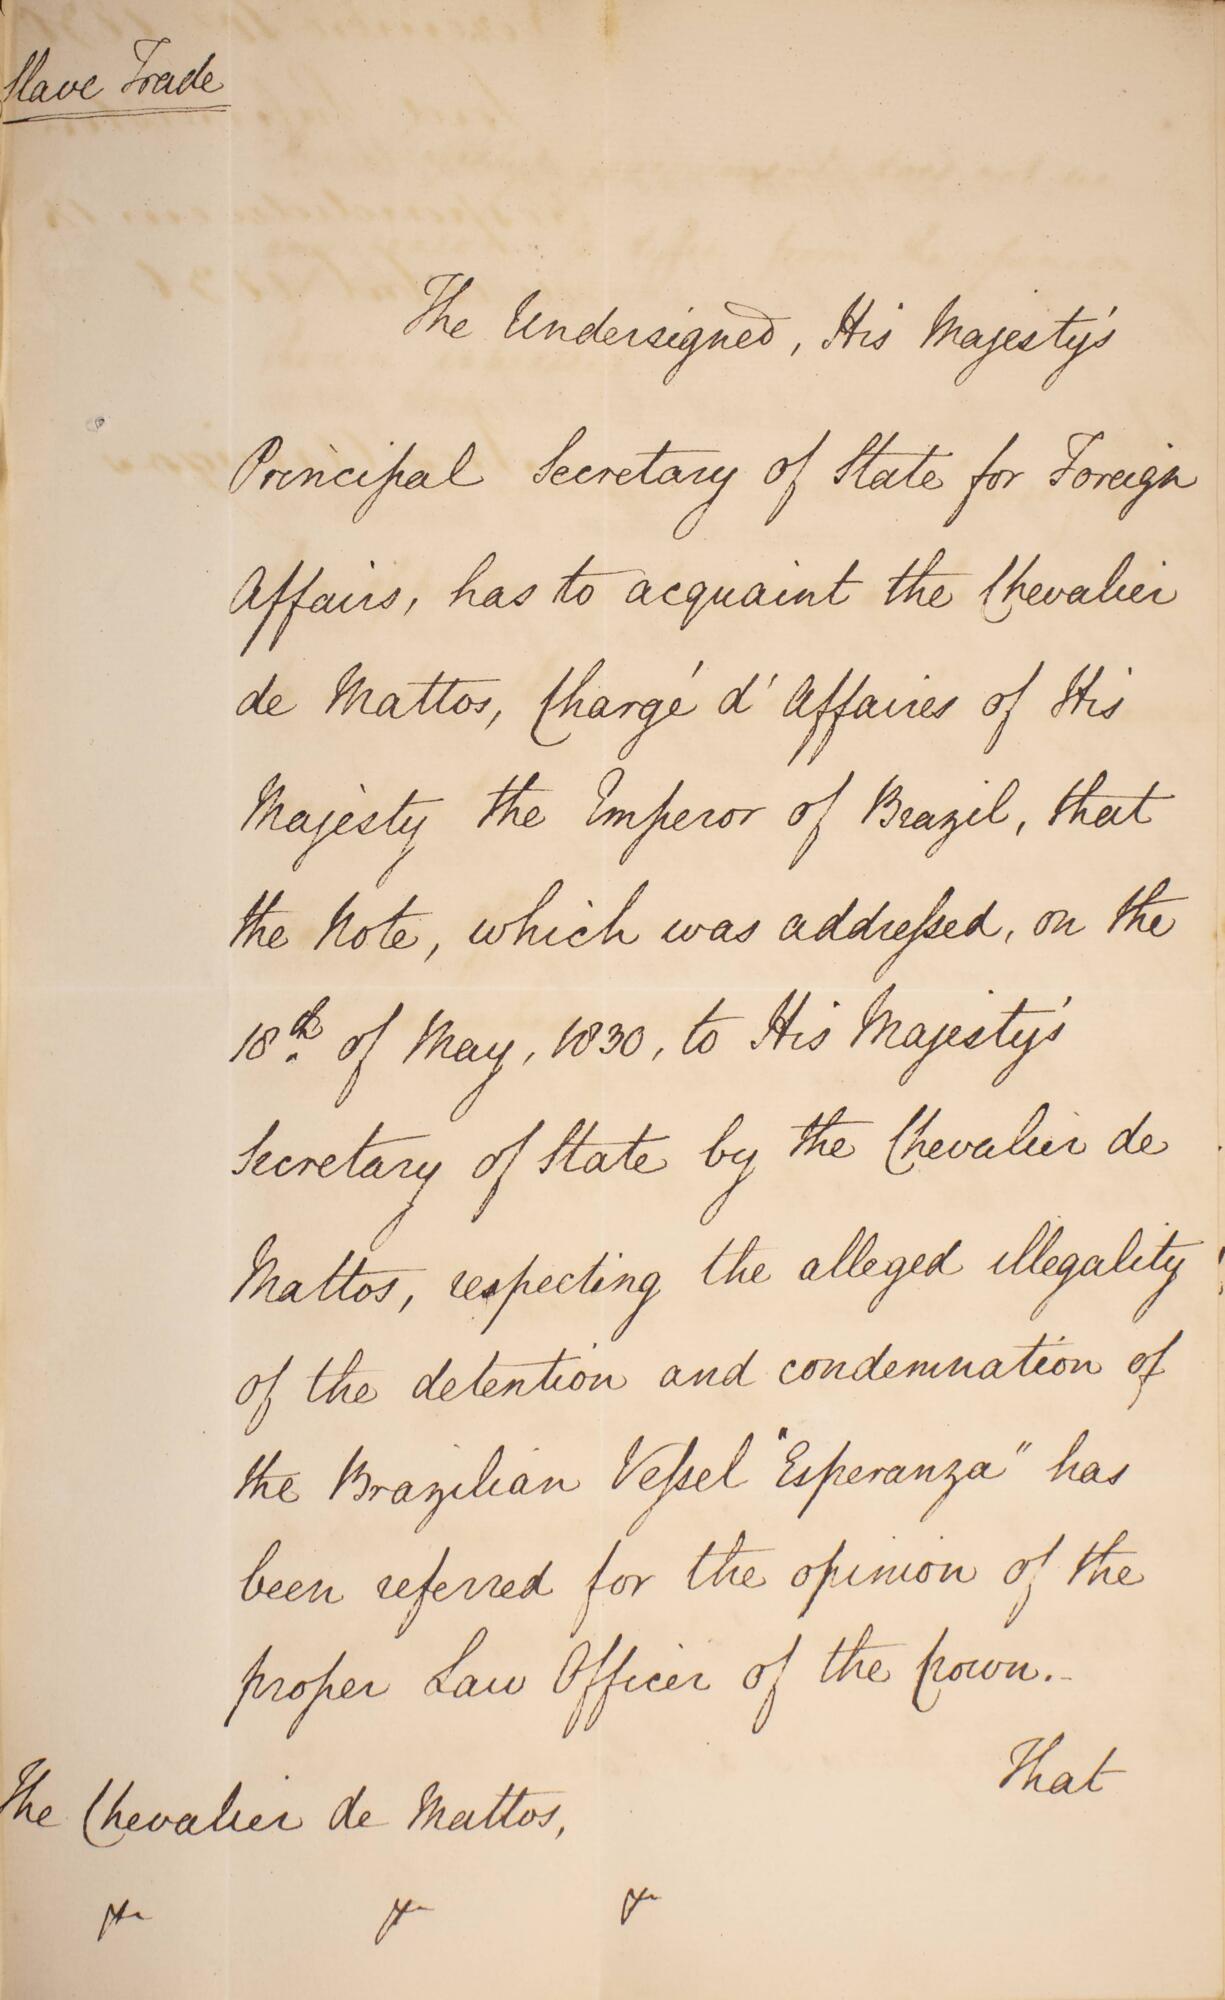 Slave Trade
The Undersigned, His Majesty's
Principal Secretary of State for Foreign
Affairs, has to acquaint the Chevalier
de Mattos, Chargé d'Affaires of His
Majesty the Emperor of Brazil, that
the Note, which was addreſsed, on the
18th. of May, 1830, to His Majesty's
Secretary of State by the Chevalier de
Mattos, respecting the alleged illegality
of the detention and condemnation of
the Brazilian Veſsel "Esperanza" has
been referred for the opinion of the
proper Law Officer of the Crown.-
That
The Chevalier de Mattos,
&c &c &c